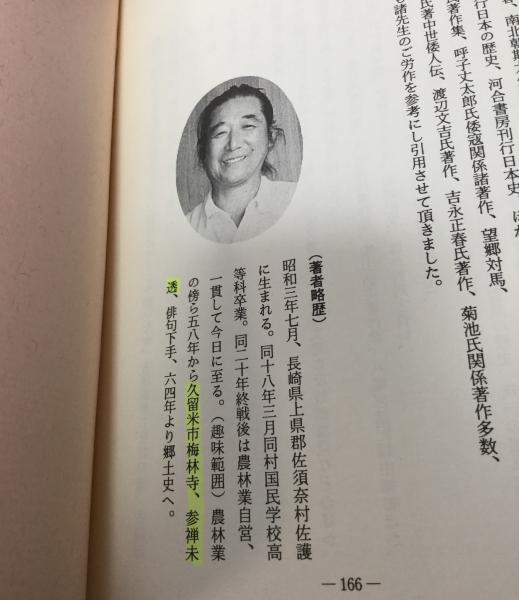 行日本の歴史、河合書房刊行日本史、ほか
氏著作集、呼子丈太郎氏倭寇関係諸著作、望郷対馬、
氏著中世倭人伝、渡辺文吉氏著作、吉永正春氏著作、菊池氏関係著作多数、
諸先生のご労作を参考にし引用させて頂きました。
（著者略歴）
昭和三年七月、長崎県上県郡佐須奈村佐護
に生まれる。同十八年三月同村国民学校高
等科卒業。同二十年終戦後は農林業自営、
一貫して今日に至る。（趣味範囲）農林業
の傍ら五八年から久留米市梅林寺、参禅未
透、俳句下手、六四年より郷土史へ。
—166—